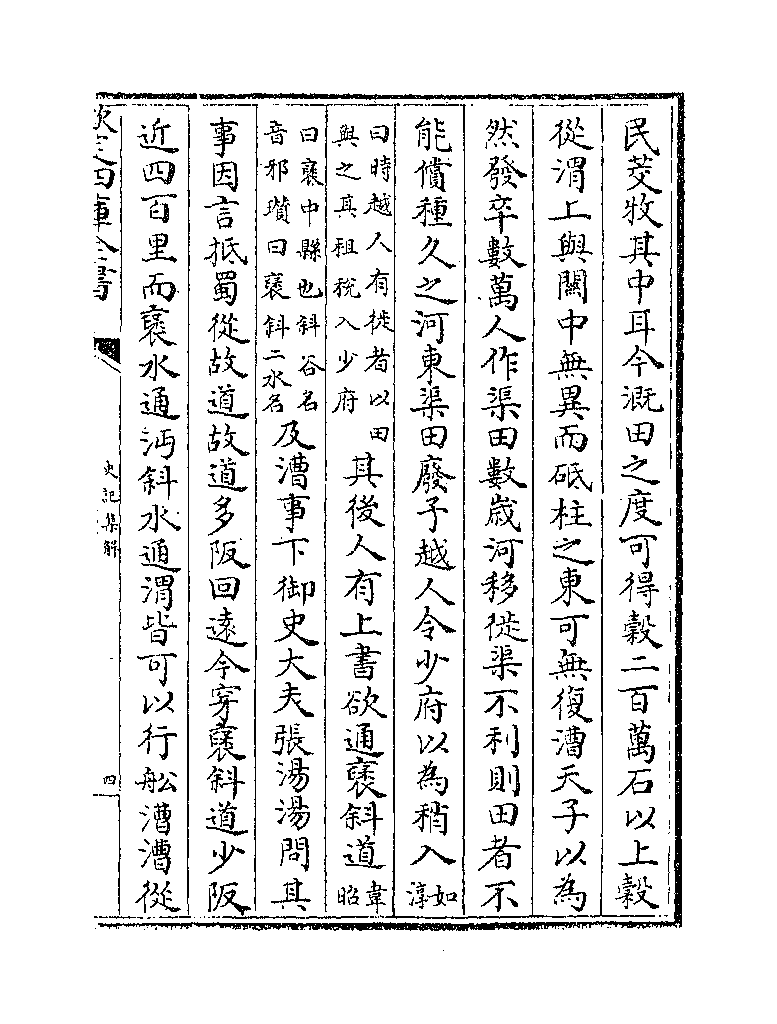 民茭牧其中耳今溉田之度可得榖二百萬石以上榖
從渭上與關中無異而砥柱之東可無復漕天子以為
然發卒數萬人作渠田數嵗河移徙渠不利則田者不
能償種久之河東渠田廢予越人令少府以為稍入如淳
曰時越人有徙者以田與之其租稅入少府其後人有上書欲通襃斜道韋昭
曰襃中縣也斜谷名音邪瓚曰襃斜二水名及漕事下御史大夫張湯湯問其
事因言抵蜀從故道故道多阪回遠今穿襃斜道少阪
近四百里而襃水通沔斜水通渭皆可以行舩漕漕從
欽定四庫全書
史記集解
四